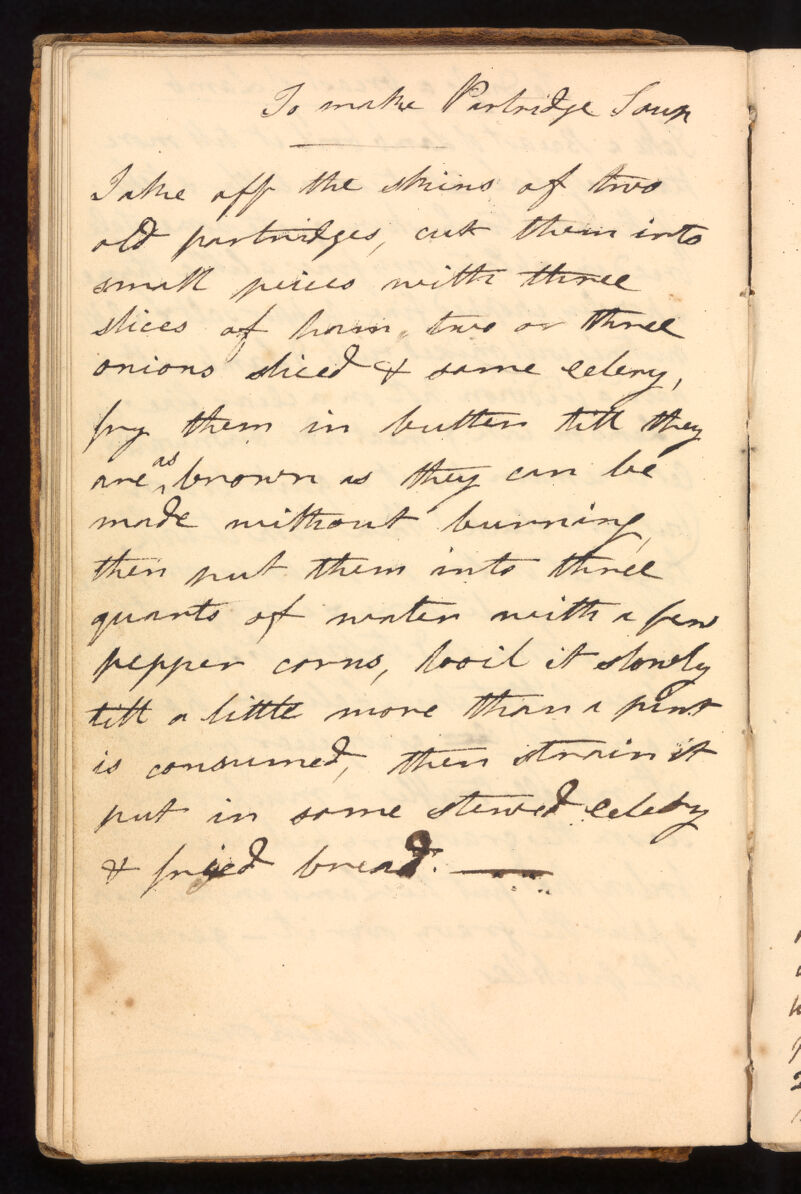 To make Partridge Soup
Take off the skins of two
old partridges, cut them into
small peices with three
slices of ham, two or three
onions sliced & some celery,
fry them in butter till they
are as brown as they can be
made without burning,
then put them into three
quarts of water with a few
pepper corns, booil it slowly
till a little more than a pint
is consumed, then strain it
put in some stewed celery
& fried bread.